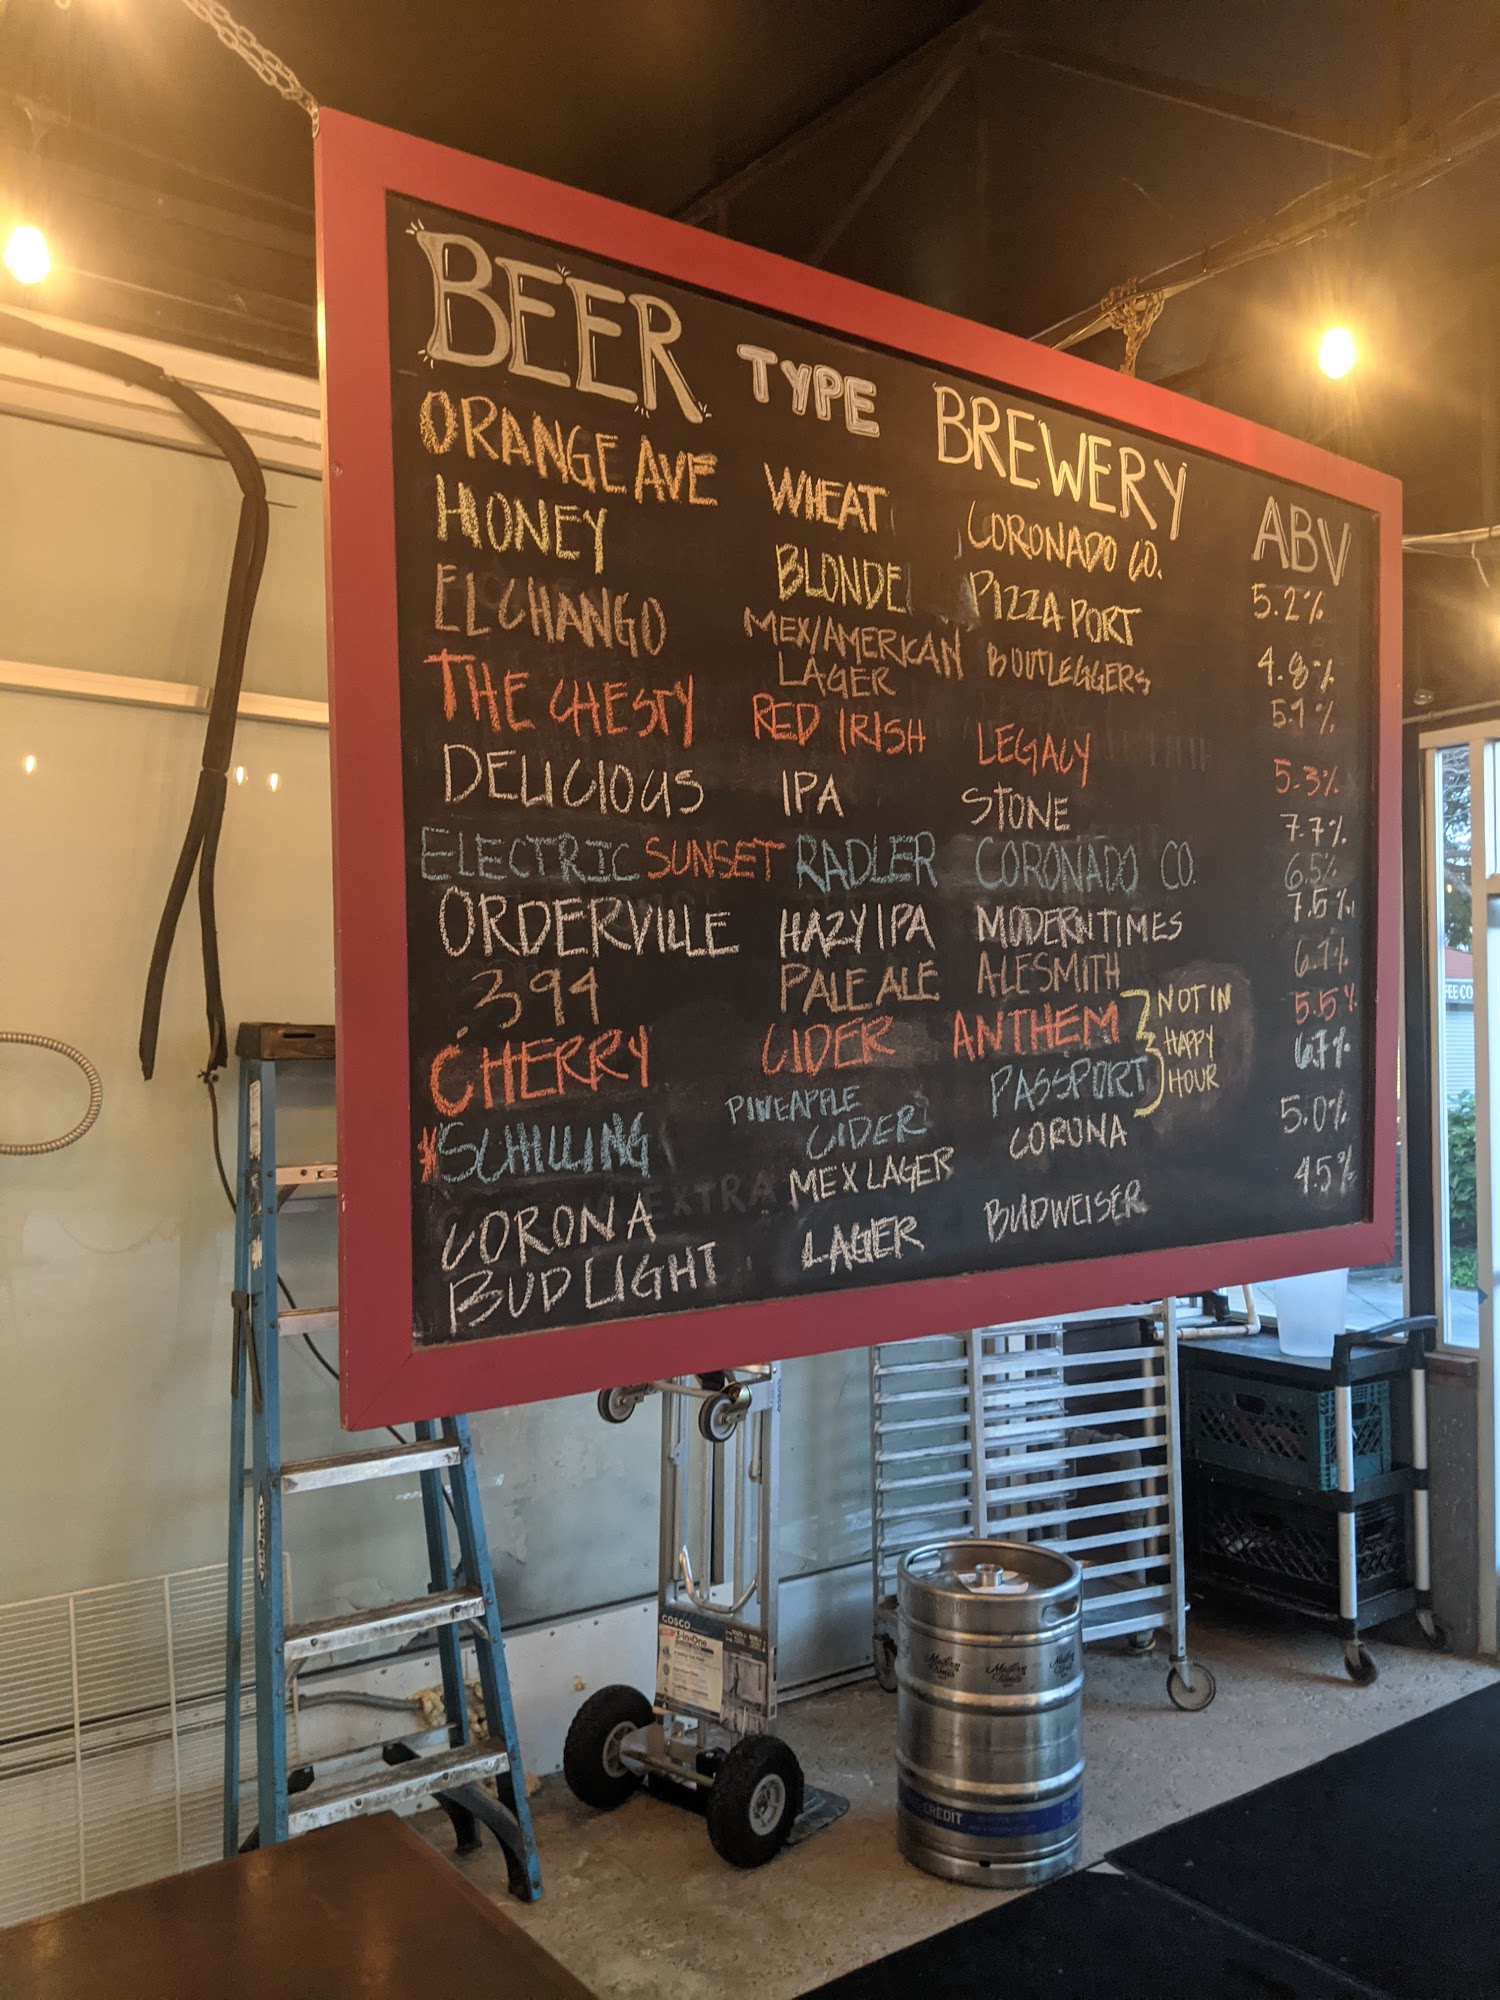 BEER TYPE BREWERY ABV
ORANGE AVE WHEAT CORONADO CO. 5.2%
HONEY BLONDE PIZZA PORT 4.8%
EL CHANGO MEX/AMERICAN LAGER BOOTLEGGERS 5.1%
THE CHESTY RED IRISH LEGACY 5.3%
DELICIOUS IPA STONE 7.7%
ELECTRIC SUNSET RADLER CORONADO CO. 6.5%
ORDERVILLE HAZY IPA MODERN TIMES 7.5%
.394 PALE ALE ALESMITH 6.1%
CHERRY CIDER ANTHEM 5.5%
SCHILLING PINEAPPLE CIDER PASSPORT 6.7%
NOT IN
HAPPY
HOUR
CORONA EXTRA MEX LAGER CORONA 5.0%
BUD LIGHT LAGER BUDWEISER 4.5%
COSCO
3-in-One
Modern Times
Modern Times
Modern Times
CREDIT
FEE CO